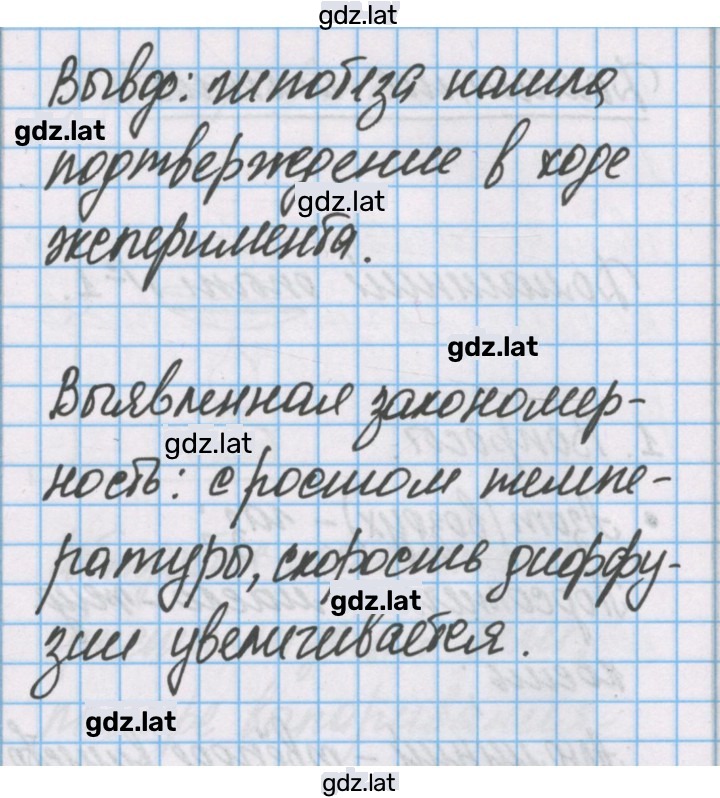 gdz.lat
Вывод: гипотеза нашла
gdz.lat
подтверждение в ходе
gdz.lat
эксперимента.
gdz.lat
Выявленная закономер-
gdz.lat
ность: с ростом темпе-
ратуры, скорость диффу-
gdz.lat
зии увеличивается.
gdz.lat
gdz.lat